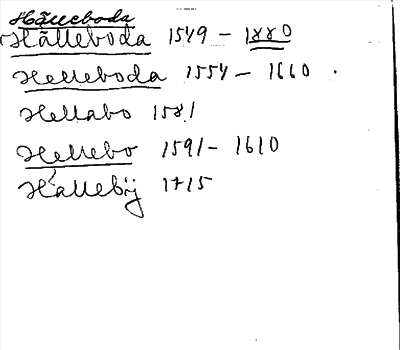 Hälleboda
Hälleboda 1549 - 1880
Helleboda 1554 - 1660
Hellabo 1581
Hellebo 1591 - 1610
Hällebÿ 1715